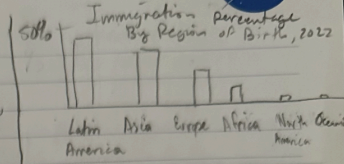 Immigration percentage
By Region of Birth, 2022
50%
Latin Asia Europe Africa North
America America